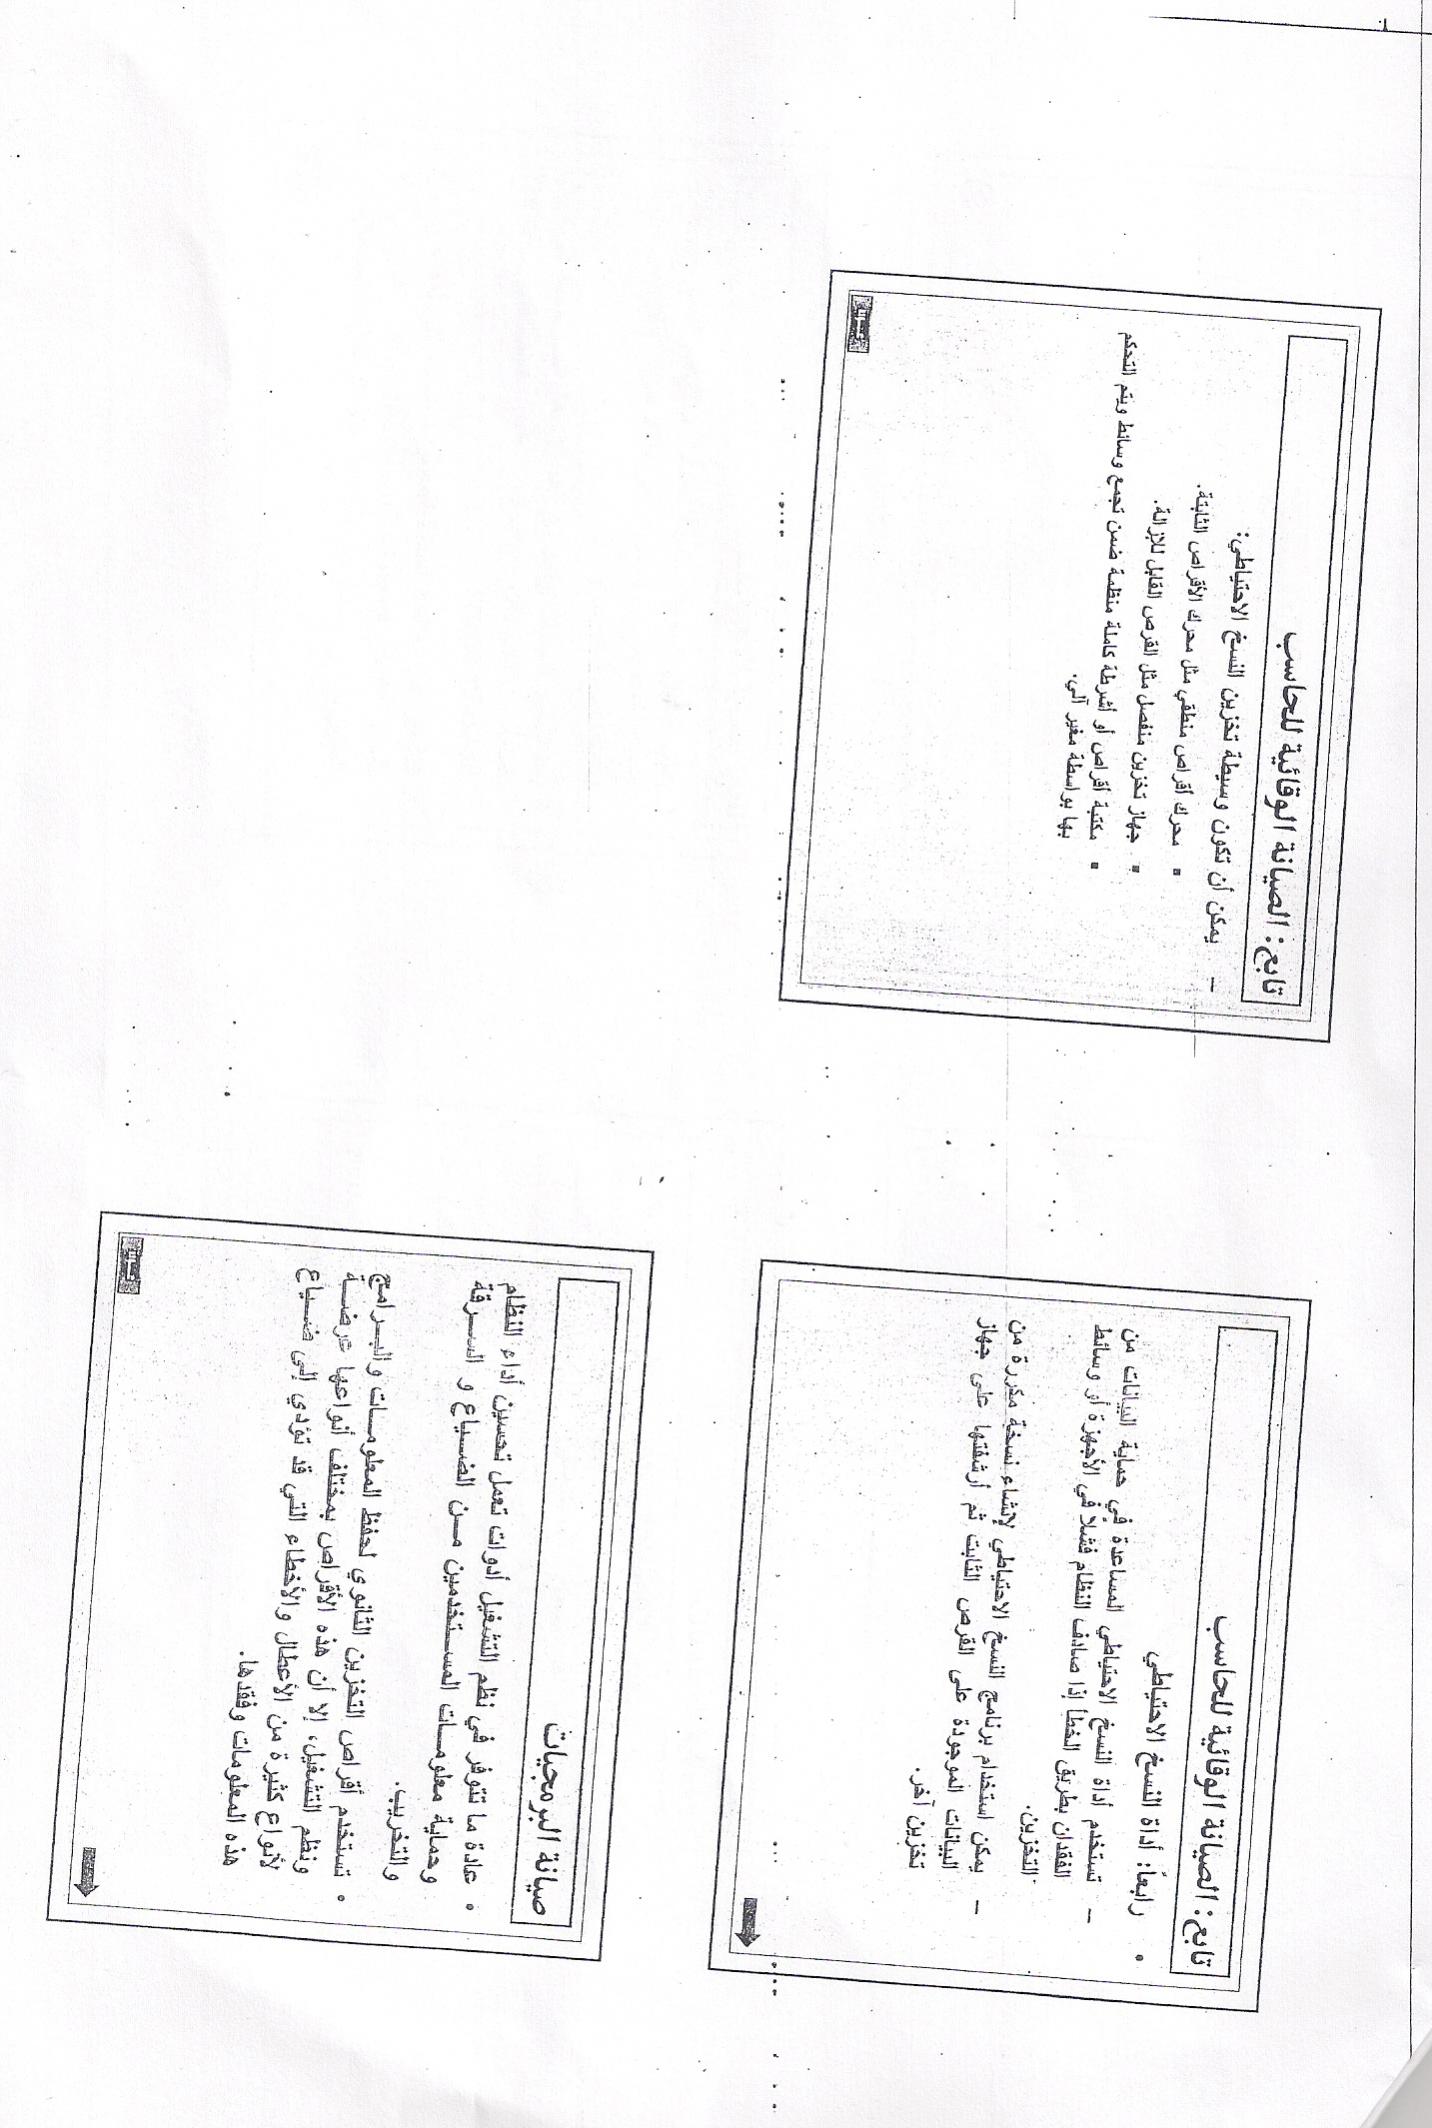 تابع: الصيانة الوقائية للحاسب
• رابعاً: أداة النسخ الاحتياطي
– تستخدم أداة النسخ الاحتياطي المساعدة في حماية البيانات من
الفقدان بطريق الخطأ إذا صادف النظام فشلاً في الأجهزة أو وسائط
التخزين.
– يمكن استخدام برنامج النسخ الاحتياطي لإنشاء نسخة مكررة من
البيانات الموجودة على القرص الثابت ثم أرشفتها على جهاز
تخزين آخر.
تابع: الصيانة الوقائية للحاسب
– يمكن أن تكون وسيطة تخزين النسخ الاحتياطي:
▪ محرك أقراص منطقي مثل محرك الأقراص الثابتة.
▪ جهاز تخزين منفصل مثل القرص القابل للإزالة.
▪ مكتبة أقراص أو أشرطة كاملة منظمة ضمن تجمع وسائط ويتم التحكم
بها بواسطة مغير آلي.
صيانة البرمجيات
• عادة ما تتوفر في نظم التشغيل أدوات تعمل تحسين أداء النظام
وحماية معلومات المستخدمين من الضياع و السرقة
والتخريب.
• تستخدم أقراص التخزين الثانوي لحفظ المعلومات والبرامج
ونظم التشغيل، إلا أن هذه الأقراص بمختلف أنواعها عرضة
لأنواع كثيرة من الأعطال والأخطاء التي قد تؤدي إلى ضياع
هذه المعلومات وفقدها.